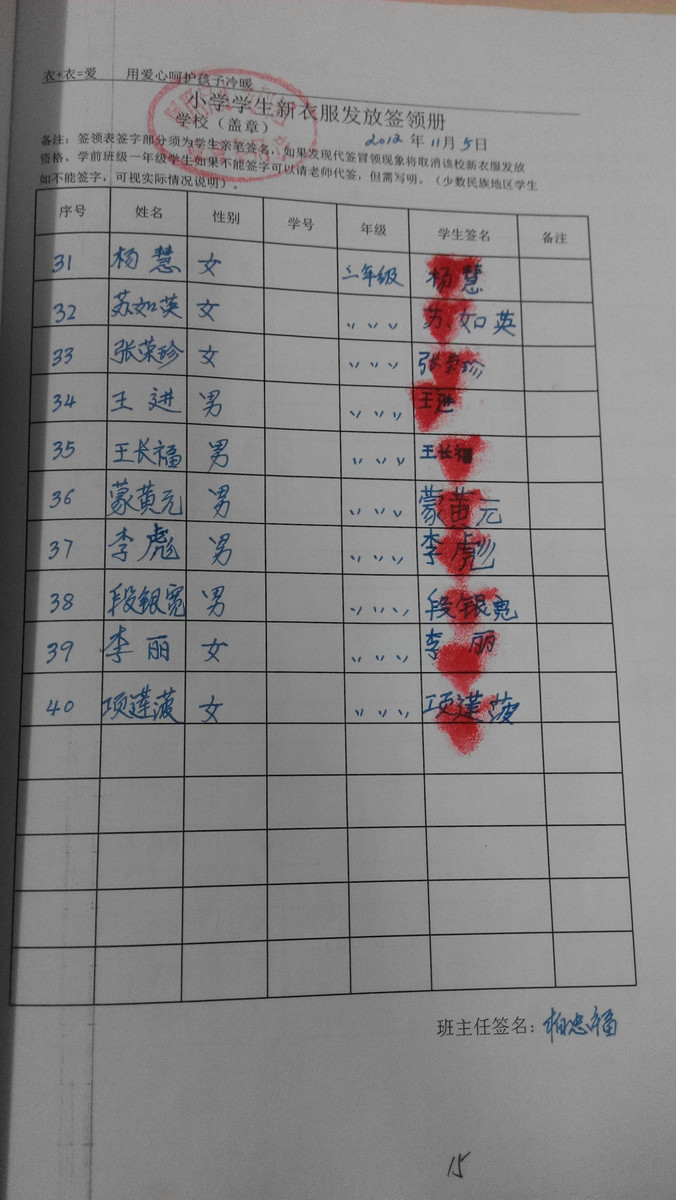 衣+衣=爱 用爱心呵护孩子冷暖
小学学生新衣服发放签领册
学校（盖章） 2012年11月5日
备注：签领表签字部分须为学生亲笔签名，如果发现代签冒领现象将取消该校新衣服发放
资格。学前班级一年级学生如果不能签字可以请老师代签，但需写明。（少数民族地区学生
如不能签字，可视实际情况说明）。
序号 姓名 性别 学号 年级 学生签名 备注
31 杨慧 女 二年级 杨慧
32 苏如英 女 〃 〃 〃 苏如英
33 张荣珍 女 〃 〃 〃 张荣珍
34 王进 男 〃 〃 〃 王进
35 王长福 男 〃 〃 〃 王长福
36 蒙黄元 男 〃 〃 〃 蒙黄元
37 李彪 男 〃 〃 〃 李彪
38 段银宽 男 〃 〃 〃 段银宽
39 李丽 女 〃 〃 〃 李丽
40 项莲菠 女 〃 〃 〃 项莲菠
班主任签名：柏忠福
15